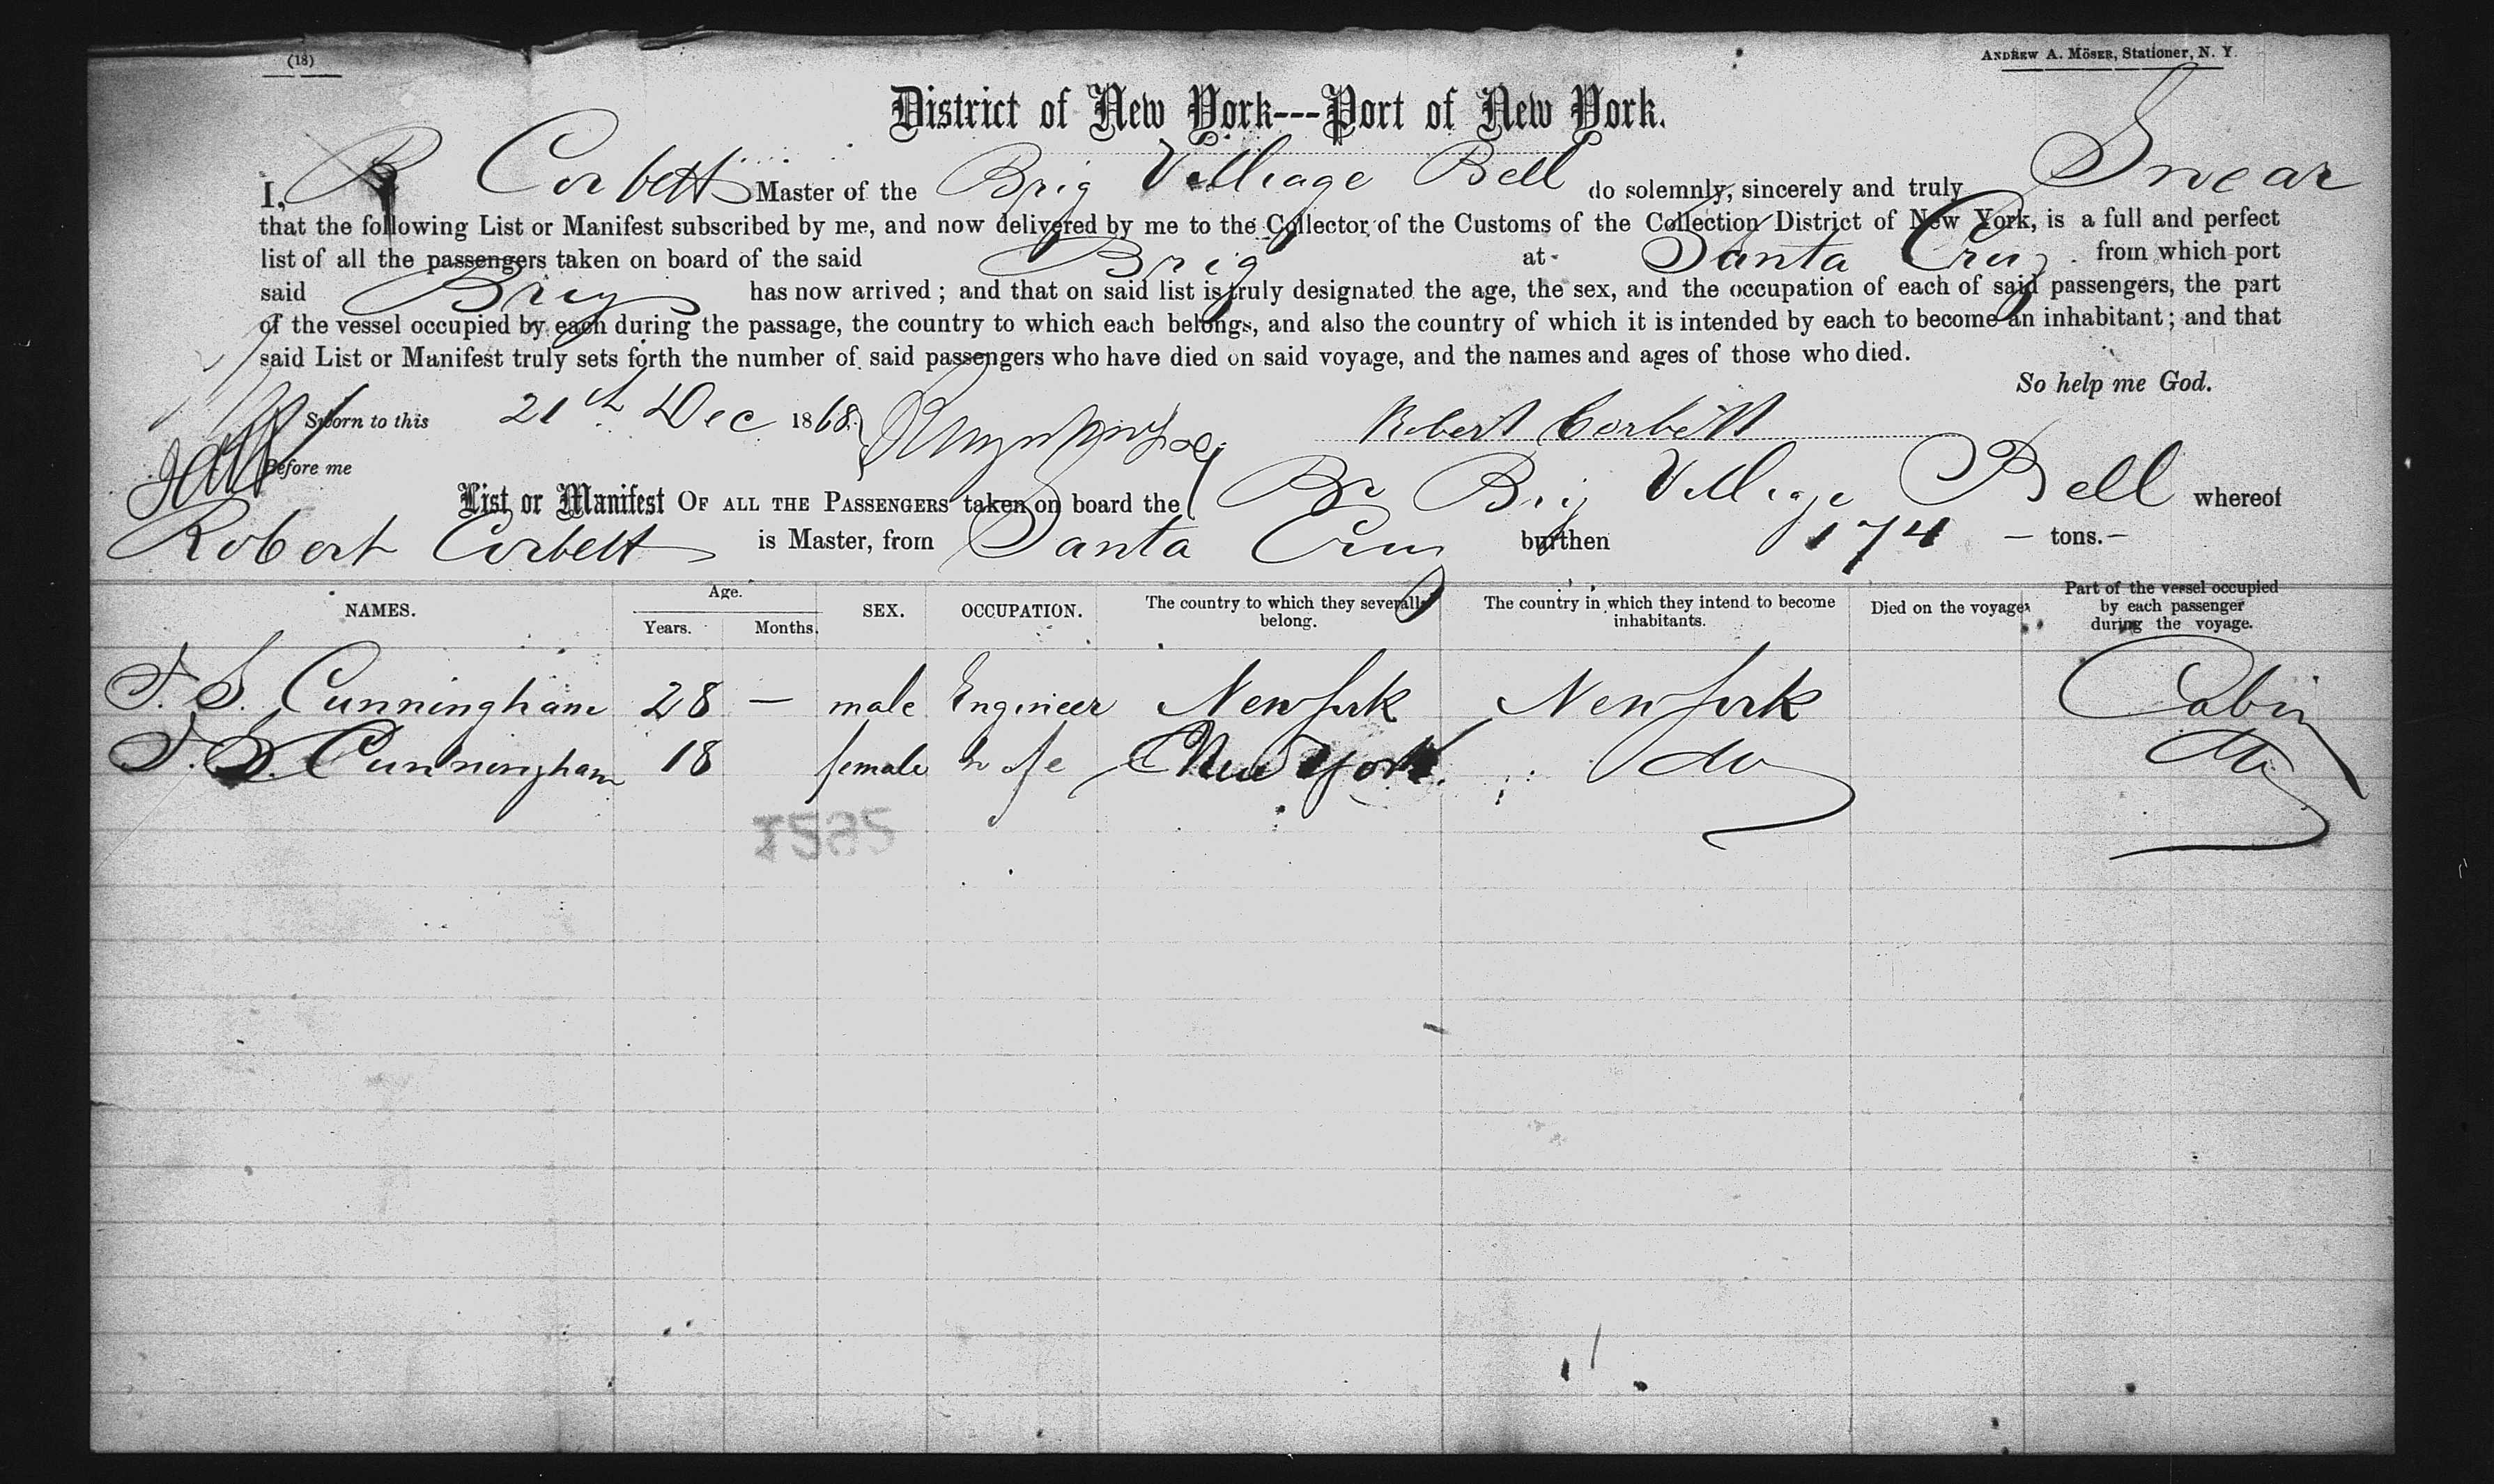 (18)
ANDREW A. MÖSER, Stationer, N. Y.
District of New York---Port of New York.
I, R Corbett Master of the Brig Villiage Bell do solemnly, sincerely and truly Swear
that the following List or Manifest subscribed by me, and now delivered by me to the Collector of the Customs of the Collection District of New York, is a full and perfect
list of all the passengers taken on board of the said Brig at Santa Cruz from which port
said Brig has now arrived; and that on said list is truly designated the age, the sex, and the occupation of each of said passengers, the part
of the vessel occupied by each during the passage, the country to which each belongs, and also the country of which it is intended by each to become an inhabitant; and that
said List or Manifest truly sets forth the number of said passengers who have died on said voyage, and the names and ages of those who died.
So help me God.
Sworn to this 21th Dec 1868 Robert Corbett
Before me
List or Manifest OF ALL THE PASSENGERS taken on board the Br Brig Village Bell whereof
Robert Corbett is Master, from Santa Cruz burthen 174 — tons.—
NAMES. Age. Years. Months. SEX. OCCUPATION. The country to which they severally belong. The country in which they intend to become inhabitants. Died on the voyage. Part of the vessel occupied by each passenger during the voyage.
T. S. Cunningham 28 — male Engineer New York New York Cabin
T. S. Cunningham 18 female New York. do do